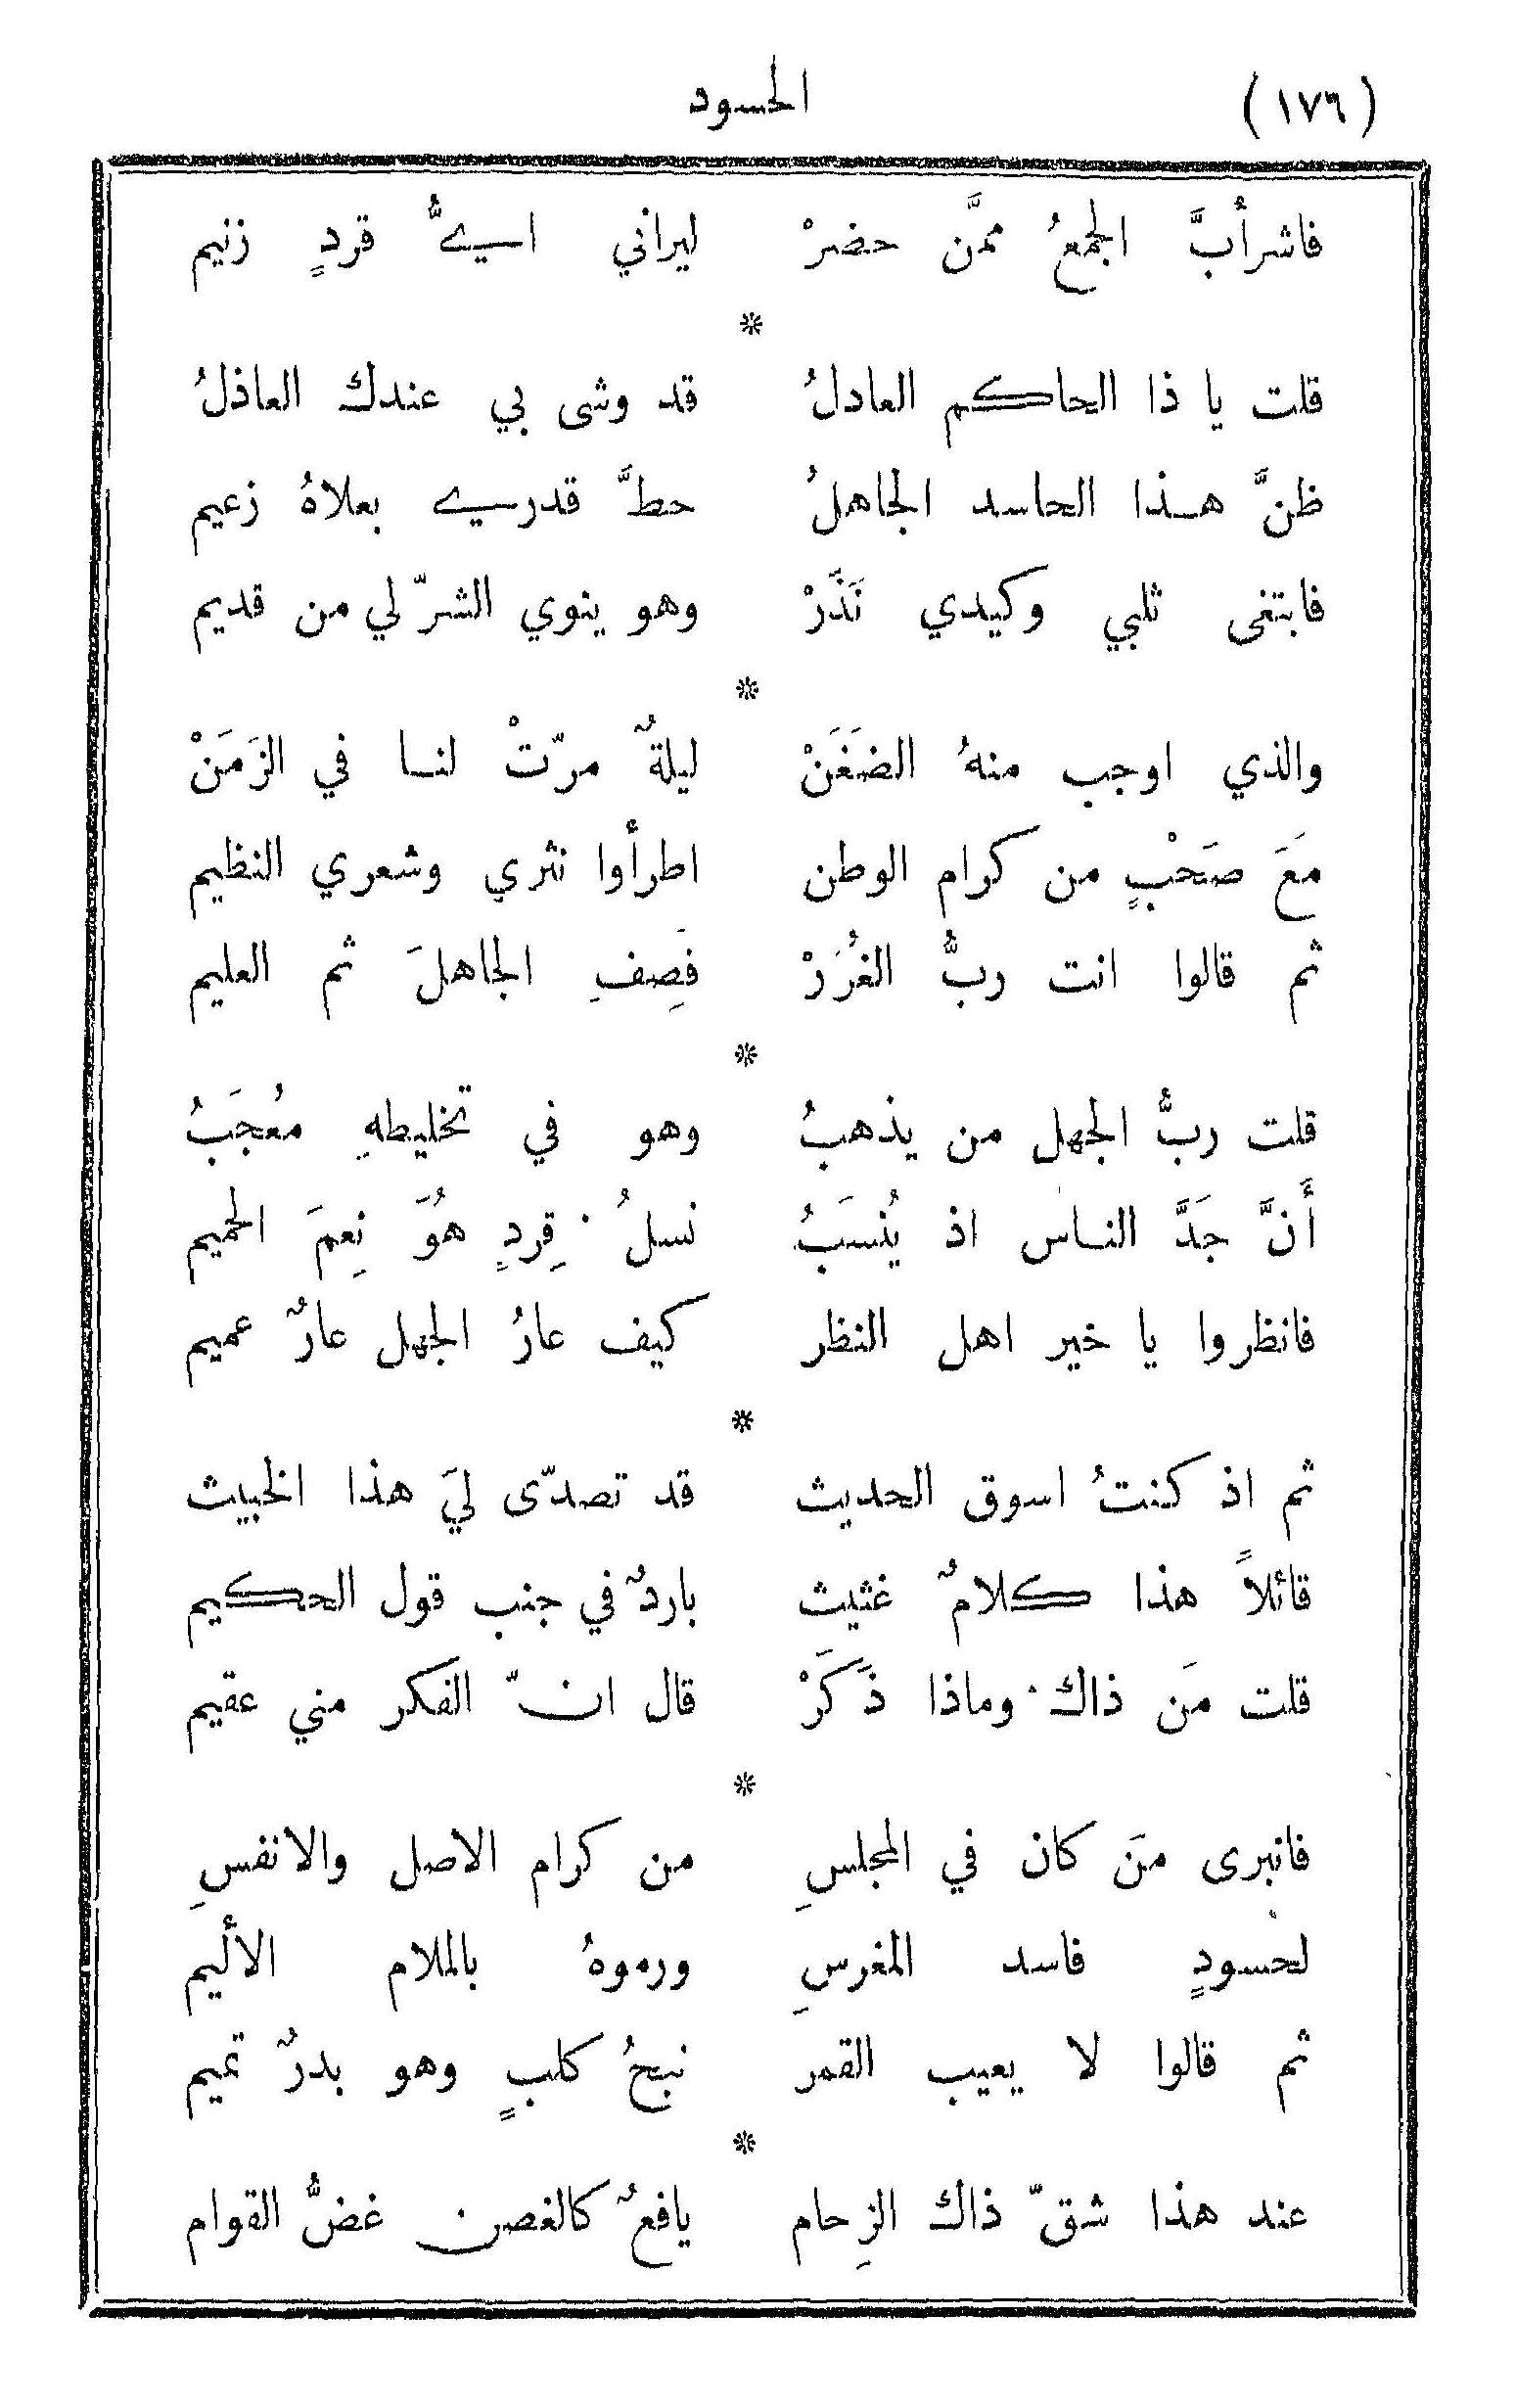 (١٧٦) الحسود
فاشرأبَّ الجمعُ ممَّن حضرْ ليراني ايُّ قردٍ زنيم
*
قلت يا ذا الحاكم العادلُ قد وشى بي عندك العاذلُ
ظنَّ هذا الحاسد الجاهلُ حطَّ قدري بعلاهُ زعيم
فابتغى ثلبي وكيدي نَذَرْ وهو ينوي الشرّ لي من قديم
*
والذي اوجب منهُ الضَغَنْ ليلةٌ مرّتْ لنا في الزَمَنْ
مَعَ صَحْبٍ من كرام الوطن اطرأُوا نثري وشعري النظيم
ثم قالوا انت ربُّ الغُرَرْ فَصِفِ الجاهلَ ثم العليم
*
قلت ربُّ الجهل من يذهبُ وهو في تخليطهِ مُعجَبُ
أَنَّ جَدَّ الناس اذ يُنسَبُ نسلُ قِردٍ هُوَ نِعمَ الحميم
فانظروا يا خير اهل النظر كيف عارُ الجهل عارٌ عميم
*
ثم اذ كنتُ اسوق الحديث قد تصدّى ليَ هذا الخبيث
قائلاً هذا كلامٌ غثيث باردٌ في جنب قول الحكيم
قلت مَن ذاك وماذا ذَكَرْ قال انّ الفكر مني عقيم
*
فانبرى مَن كان في المجلسِ من كرام الاصل والانفسِ
لحسودٍ فاسد المغرسِ ورموهُ بالملام الأليم
ثم قالوا لا يعيب القمر نبحُ كلبٍ وهو بدرٌ تميم
*
عند هذا شقّ ذاك الزِحام يافعٌ كالغصن غضُّ القوام